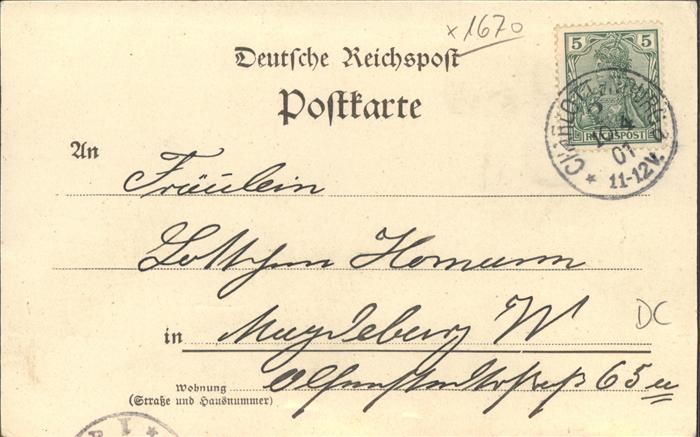 x1670
Deutsche Reichspost
Postkarte
5 5
REICHSPOST
CHARLOTTENBURG 2
4
01
11-12V.
An
Fräulein
Lottchen Homann
DC
in Magdeburg W
Wohnung
(Straße und Hausnummer)
65